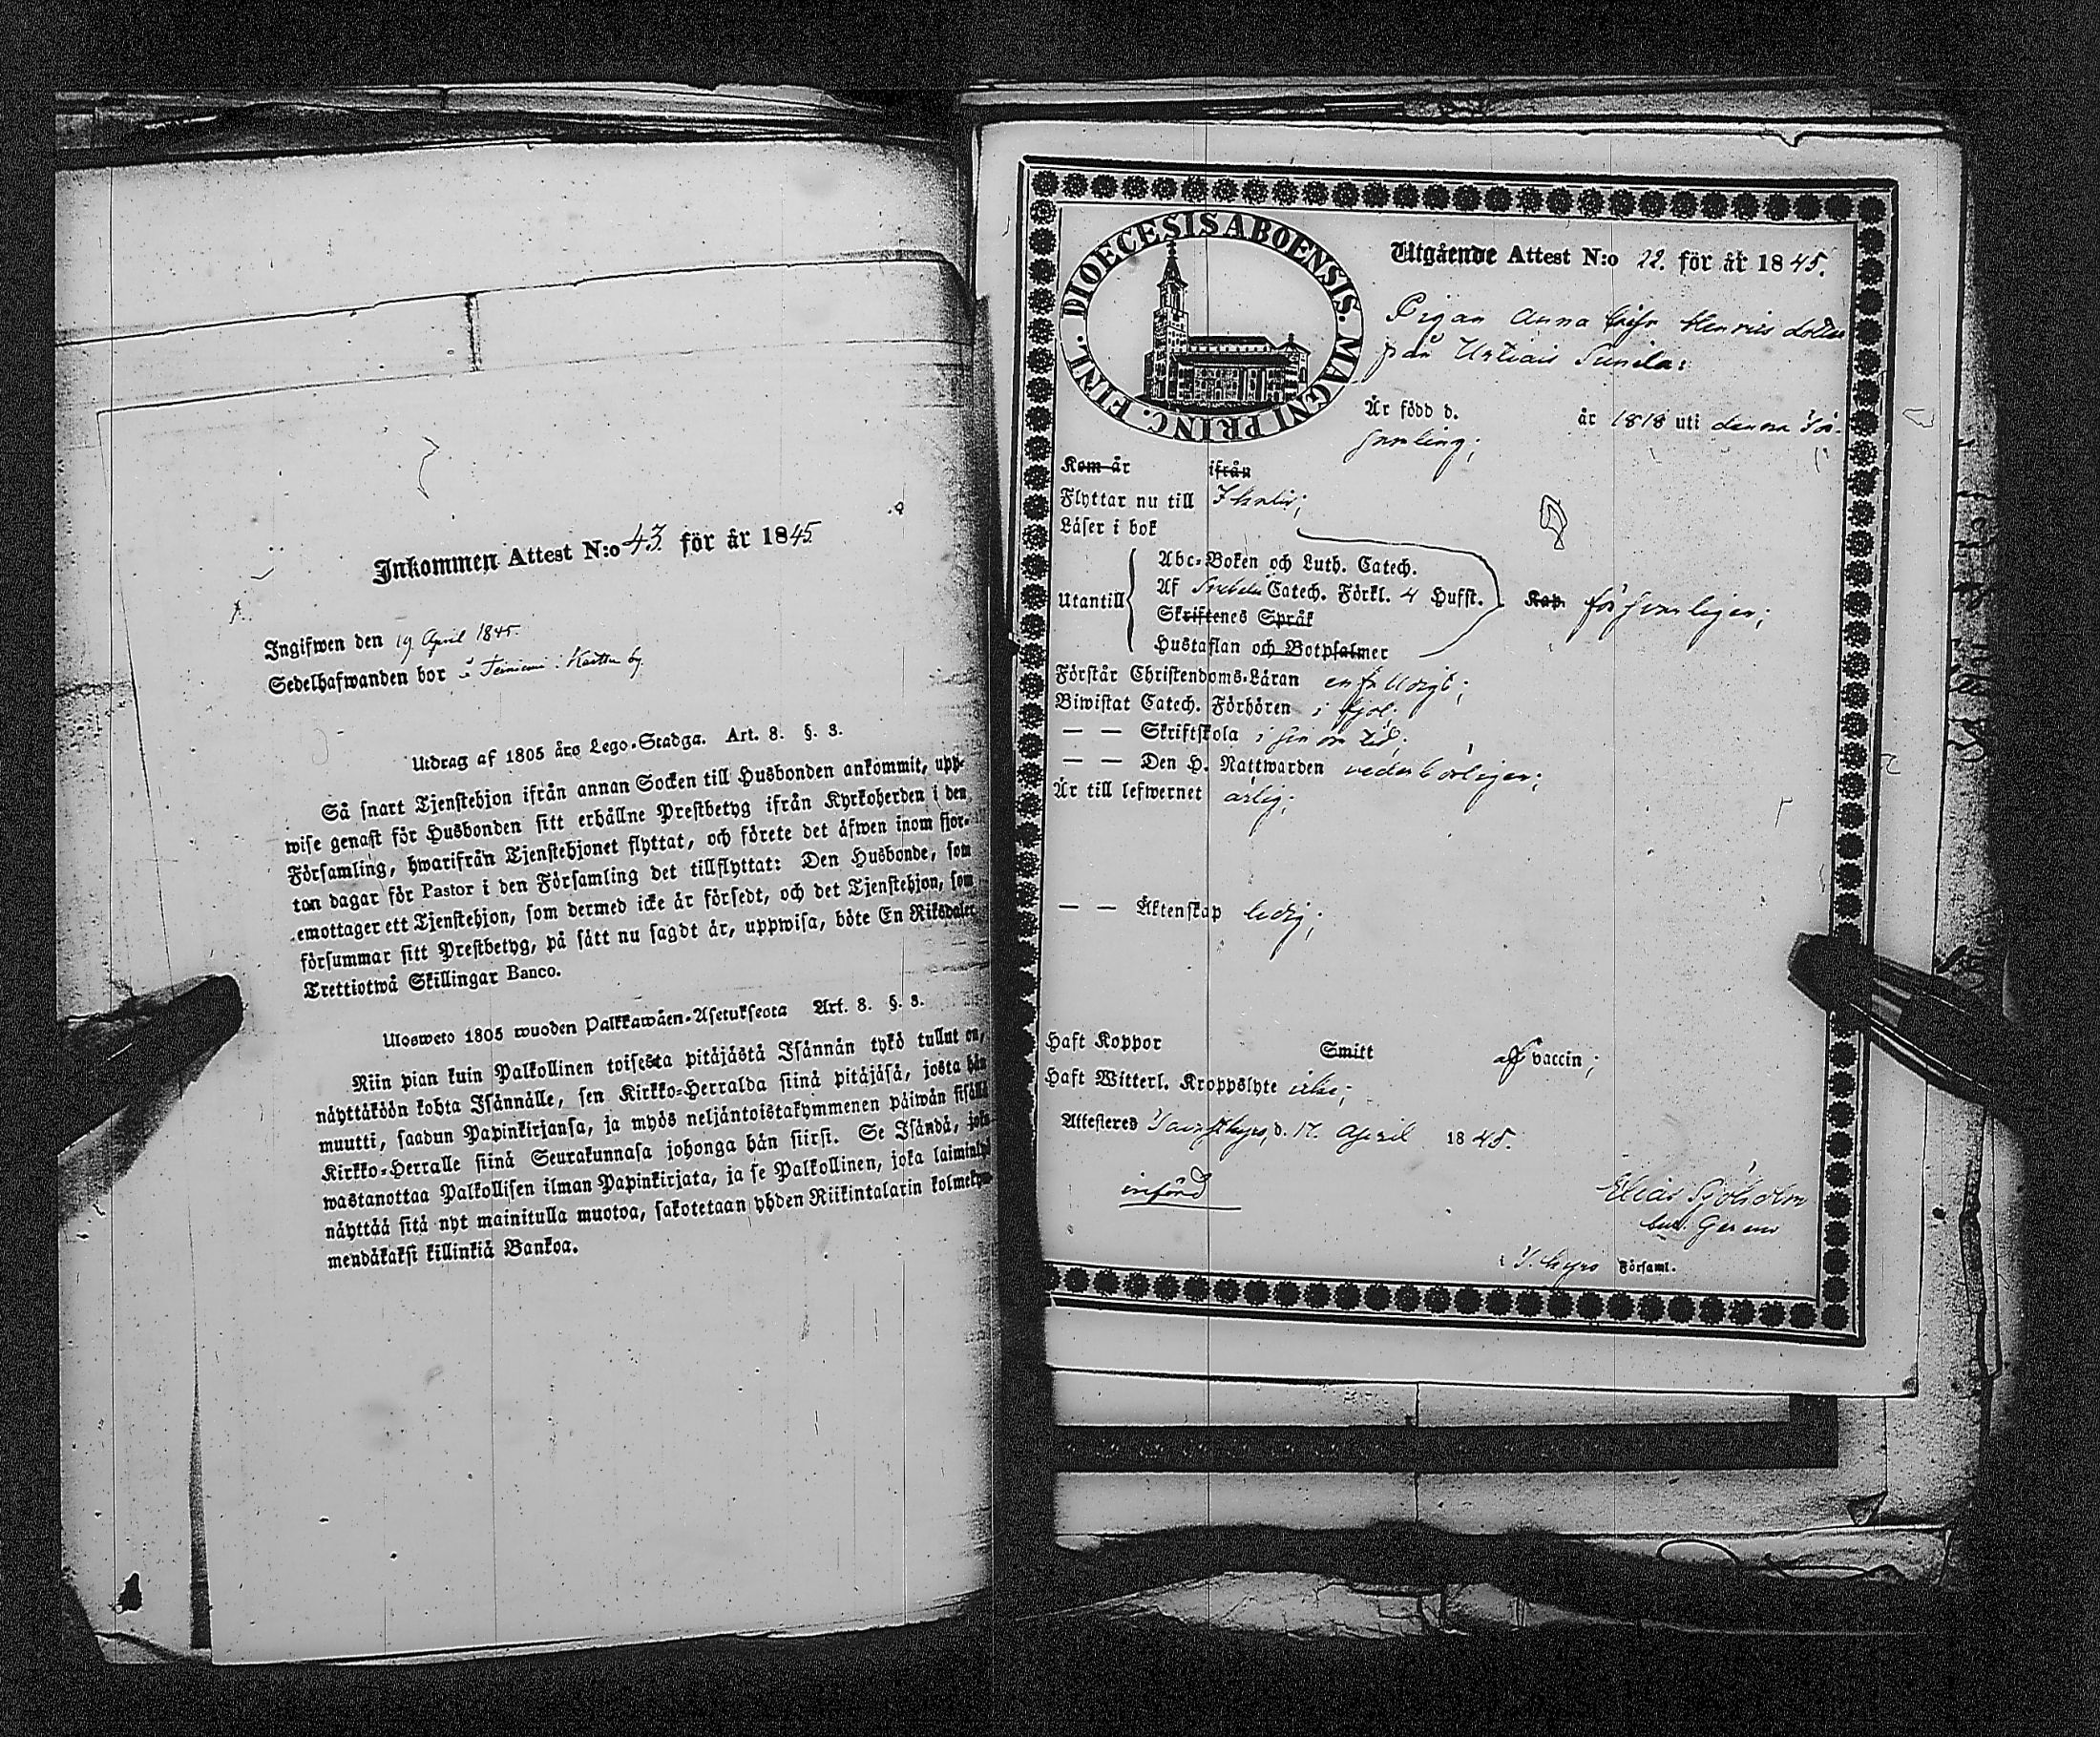 Inkommen Attest N:o 43. för år 1845.
Ingifwen den 19 April 1845.
Sedelhafwanden bor i by
Utdrag af 1805 års Lego-Stadga. Art. 8. §. 3.
Så snart Tjenstehjon ifrån annan Socken till Husbonden ankommit, upp-
wise genast för Husbonden sitt erhållne Prestbetyg ifrån Kyrkoherden i den
Församling, hwarifrån Tjenstehjonet flyttat, och förete det äfwen inom fjor-
ton dagar för Pastor i den Församling det tillflyttat: Den Husbonde, som
emottager ett Tjenstehjon, som dermed icke är försedt, och det Tjenstehjon, som
försummar sitt Prestbetyg, på sätt nu sagdt är, uppwisa, böte En Riksdaler
Trettiotwå Skillingar Banco.
Ulosweto 1805 wuoden Palkkawäen-Asetuksesta Art. 8. §. 3.
Niin pian kuin Palkollinen toisesta pitäjästä Isännän tykö tullut on,
näyttäköön kohta Isännälle, sen Kirkko-Herralda siinä pitäjäsä, josta hän
muutti, saadun Papinkirjansa, ja myös neljäntoistakymmenen päiwän sisällä
Kirkko-Herralle siinä Seurakunnasa johonga hän siirsi. Se Isändä, joka
wastanottaa Palkollisen ilman Papinkirjata, ja se Palkollinen, joka laiminlyö
näyttää sitä nyt mainitulla muotoa, sakotetaan yhden Riikintalarin kolmekym-
mendäkaksi killinkiä Bankoa.
DIOECESIS ABOENSIS. MAGNI PRINC. FINL.
Utgående Attest N:o 22. för år 1845.
Pigan Anna Henricsdotter
från Sunila:
Är född d. år 1818 uti denna För-
samling;
Kom år ifrån
Flyttar nu till Ikalis;
Läser i bok
Abc-Boken och Luth. Catech.
Utantill Af Svebelii Catech. Förkl. 4 Hufst. Kap. försvarligen;
Skriftenes Språk
Hustaflan och Botpsalmer
Förstår Christendoms-Läran enfaldigt;
Biwistat Catech. Förhören i fjol;
— — Skriftskola i sin tid;
— — Den H. Nattwarden vederbörligen;
Är till lefwernet ärlig;
— — Äktenskap ledig;
Haft Koppor Smitt af vaccin;
Haft Witterl. Kroppslyte icke;
Attesteres Tavastkyro, d. 17. April 1845.
införd
Elias Sjöholm
i T. kyro Församl.